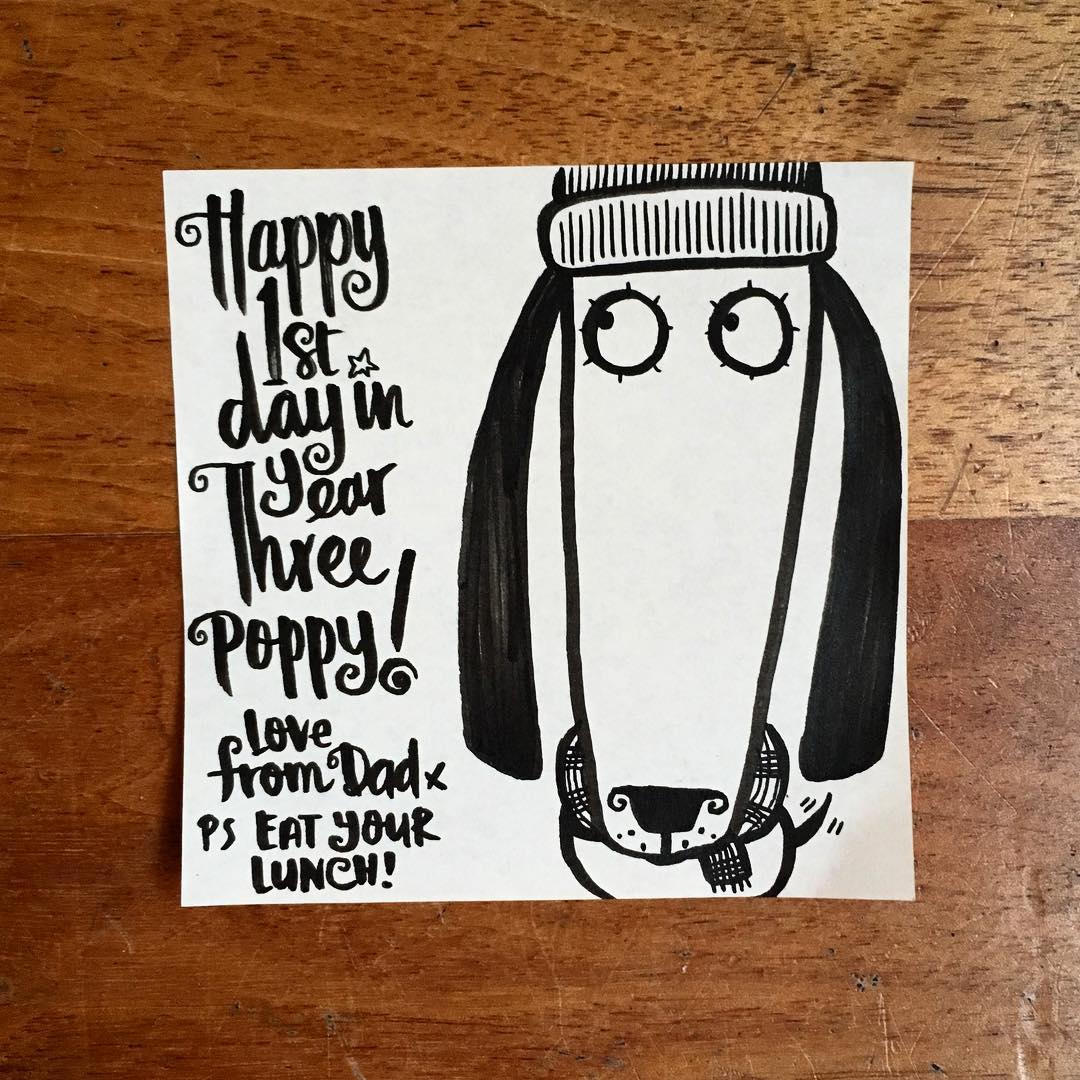 Happy
1st
day in
Year
Three
Poppy!
Love
from Dad x
PS EAT YOUR
LUNCH!